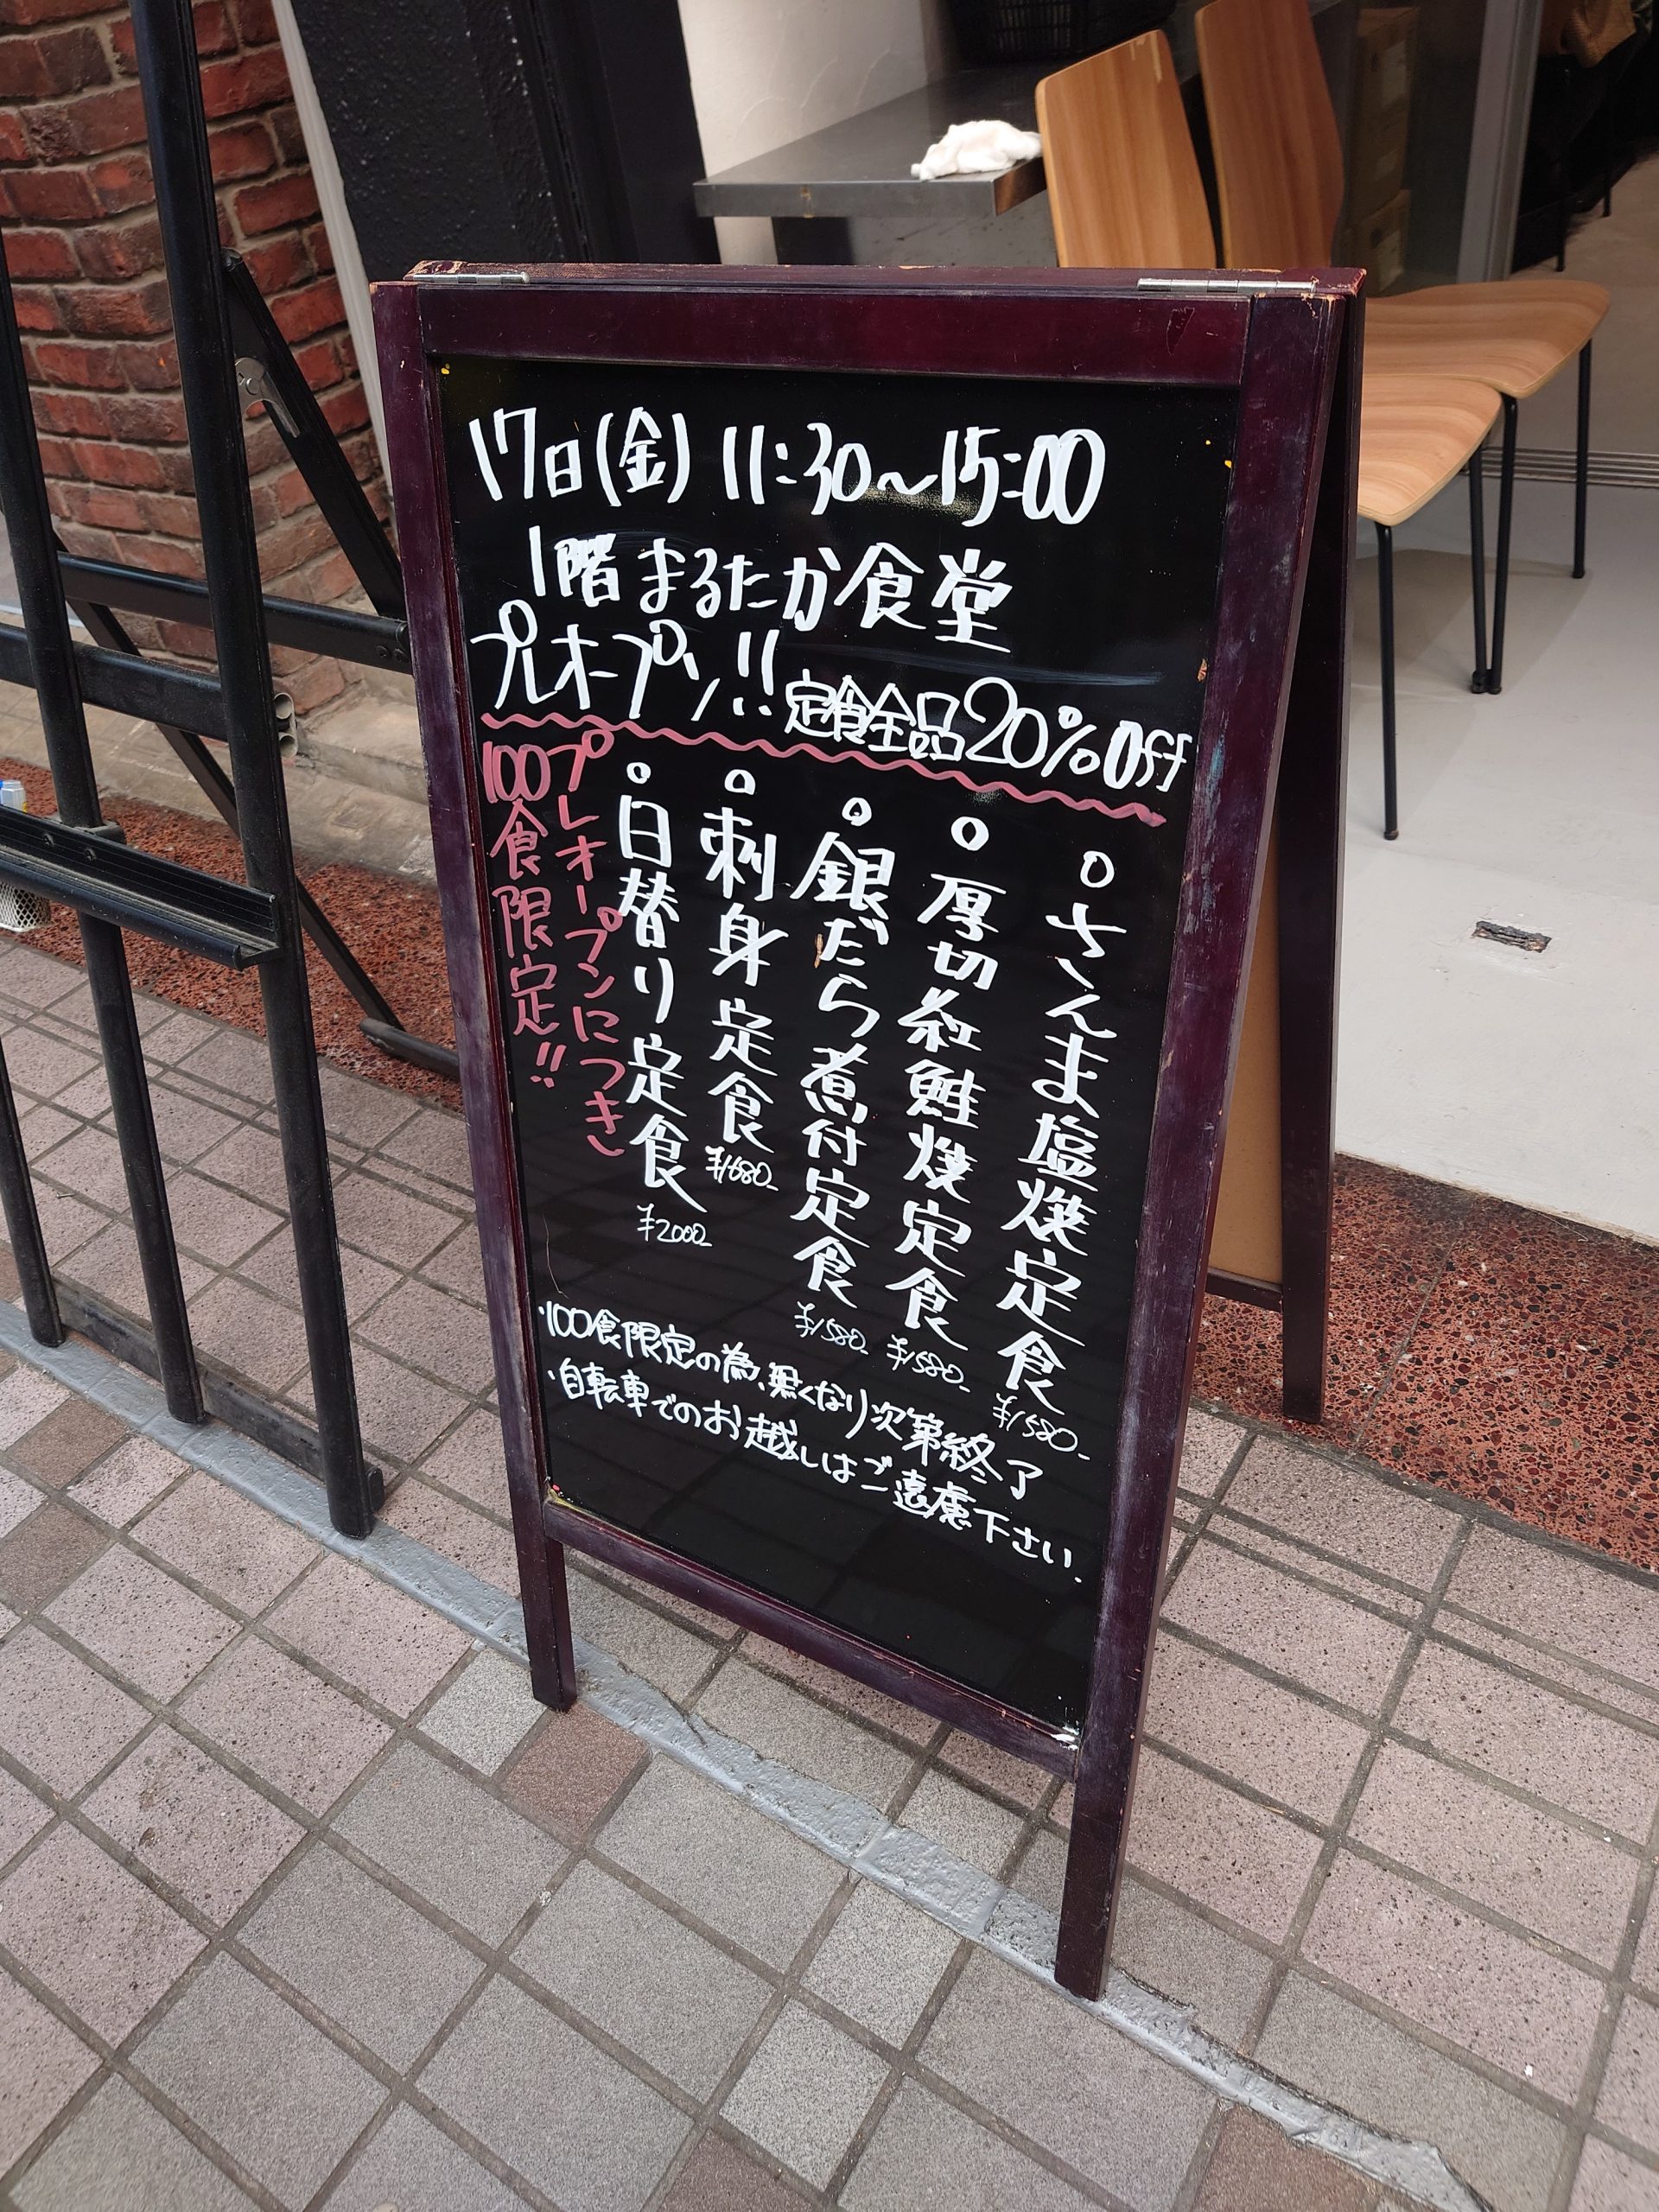 17日(金) 11:30〜15:00
1階 まるたか食堂
プレオープン!! 定食全品20%Off
○さんま塩焼定食 ¥1580-
○厚切紅鮭焼定食 ¥1580-
○銀だら煮付定食 ¥1580-
○刺身定食 ¥1680-
○日替り定食 ¥2000-
プレオープンにつき
100食限定!!
・100食限定の為、無くなり次第終了
・自転車でのお越しはご遠慮下さい.